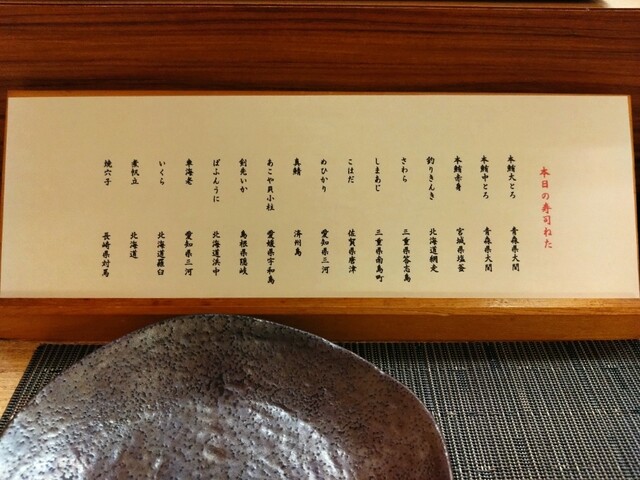 本日の寿司ねた
本鮪大とろ 青森県大間
本鮪中とろ 青森県大間
本鮪赤身 宮城県塩釜
釣りきんき 北海道網走
さわら 三重県答志島
しまあじ 三重県南島町
こはだ 佐賀県唐津
めひかり 愛知県三河
真鯖 済州島
あこや貝小柱 愛媛県宇和島
剣先いか 島根県隠岐
ばふんうに 北海道浜中
車海老 愛知県三河
いくら 北海道羅臼
煮帆立 北海道
焼穴子 長崎県対馬